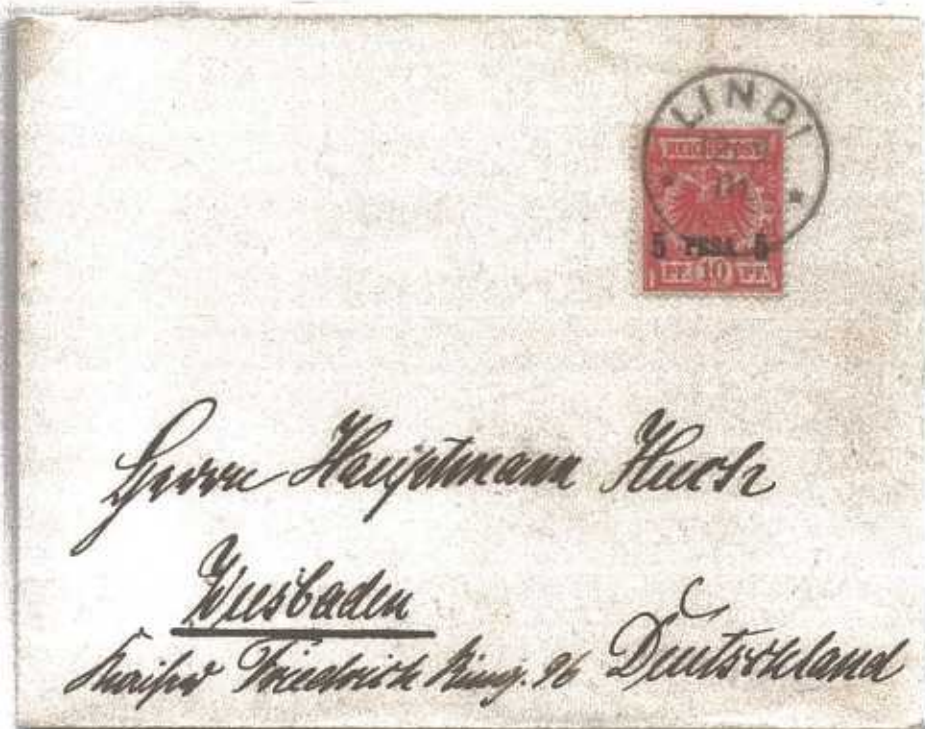 LINDI
REICHSPOST
5 PESA 5
PF 10 PF
Herrn Hauptmann
Wiesbaden
Kaiser Friedrich Ring. 96 Deutschland